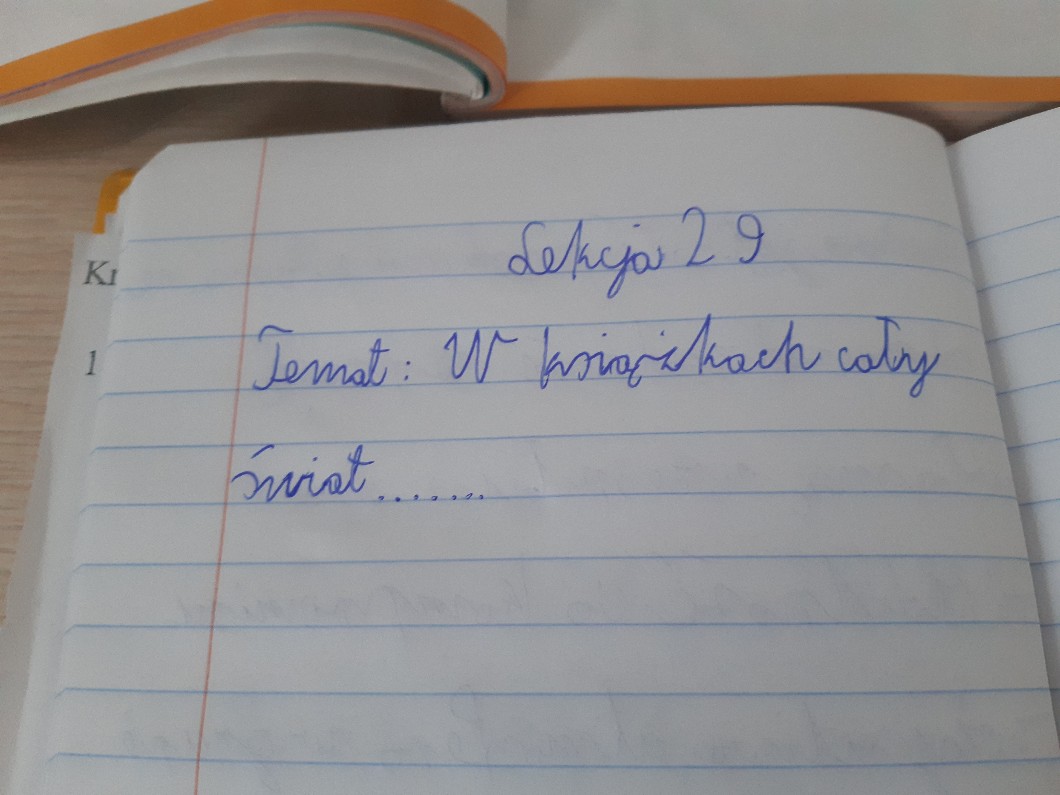 Lekcja 29
Temat: W książkach cały
świat.......
Kr
1